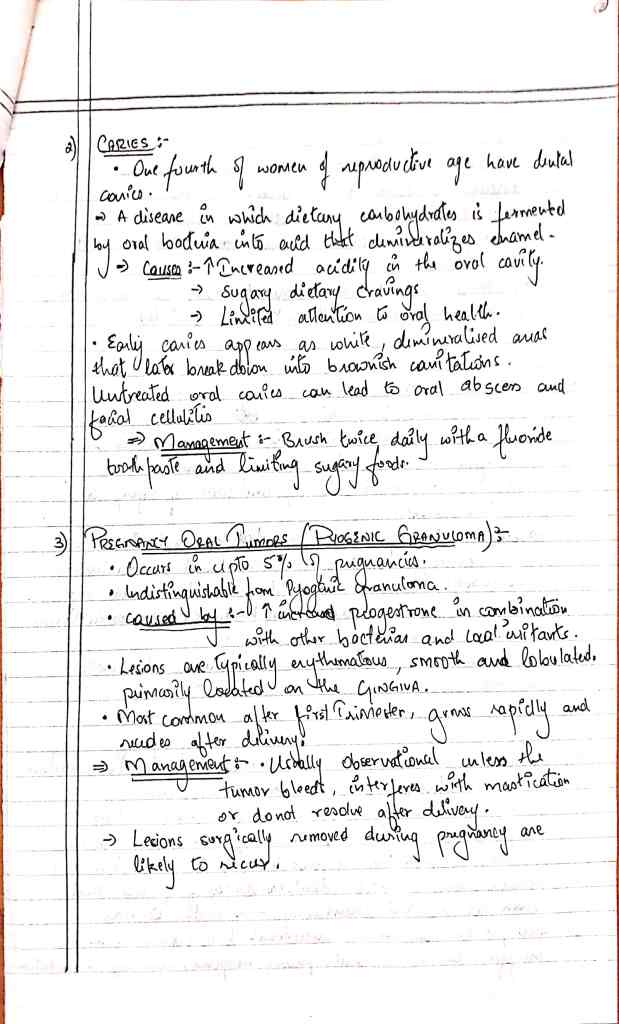 2) CARIES :-
• One fourth of women of reproductive age have dental
caries.
⇒ A disease in which dietary carbohydrates is fermented
by oral bacteria into acid that demineralizes enamel.
⇒ Causes :- ↑ Increased acidity in the oral cavity.
→ Sugary dietary cravings
→ Limited attention to oral health.
• Early caries appears as white, demineralised areas
that later break down into brownish cavitations.
Untreated oral caries can lead to oral abscess and
facial cellulitis
⇒ Management :- Brush twice daily with a fluoride
toothpaste and limiting sugary foods.
3) PREGNANCY ORAL TUMORS (PYOGENIC GRANULOMA) :-
• Occurs in upto 5% of pregnancies.
• Indistinguishable from Pyogenic granuloma.
• caused by :- ↑ increased progestrone in combination
with other bacterias and local irritants.
• Lesions are Typically erythematous, smooth and lobulated,
primarily located on the GINGIVA.
• Most common after first Trimester, grows rapidly and
recedes after delivery.
⇒ Management :- • Usually observational unless the
tumor bleeds, interferes with mastication
or donot resolve after delivery.
→ Lesions surgically removed during pregnancy are
likely to recur.